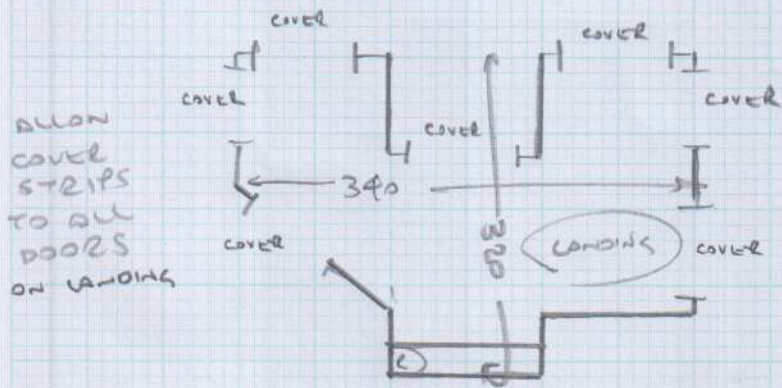 COVER
COVER
COVER
COVER
COVER
ALLOW
COVER
STRIPS
TO ALL
DOORS
ON LANDING
340
320
LANDING
COVER
COVER